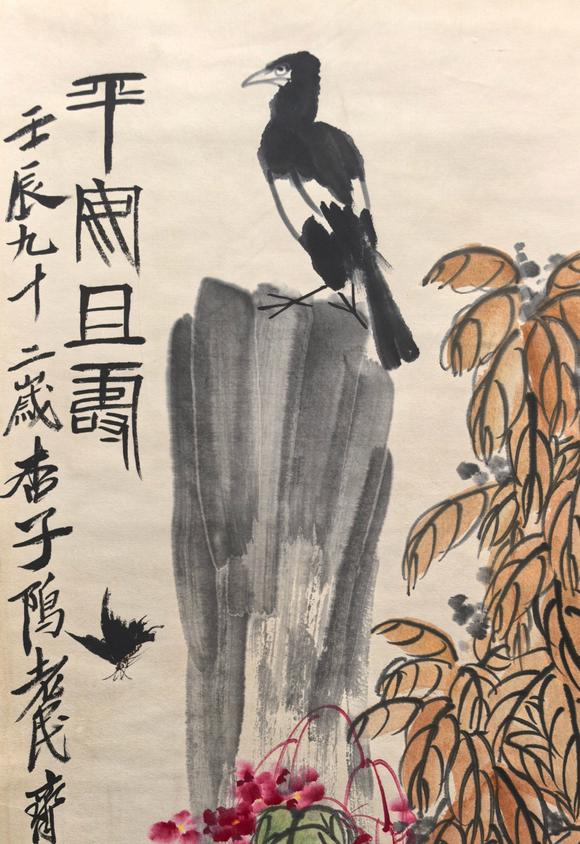 平安且壽
壬辰九十二歲杏子隖老民齊